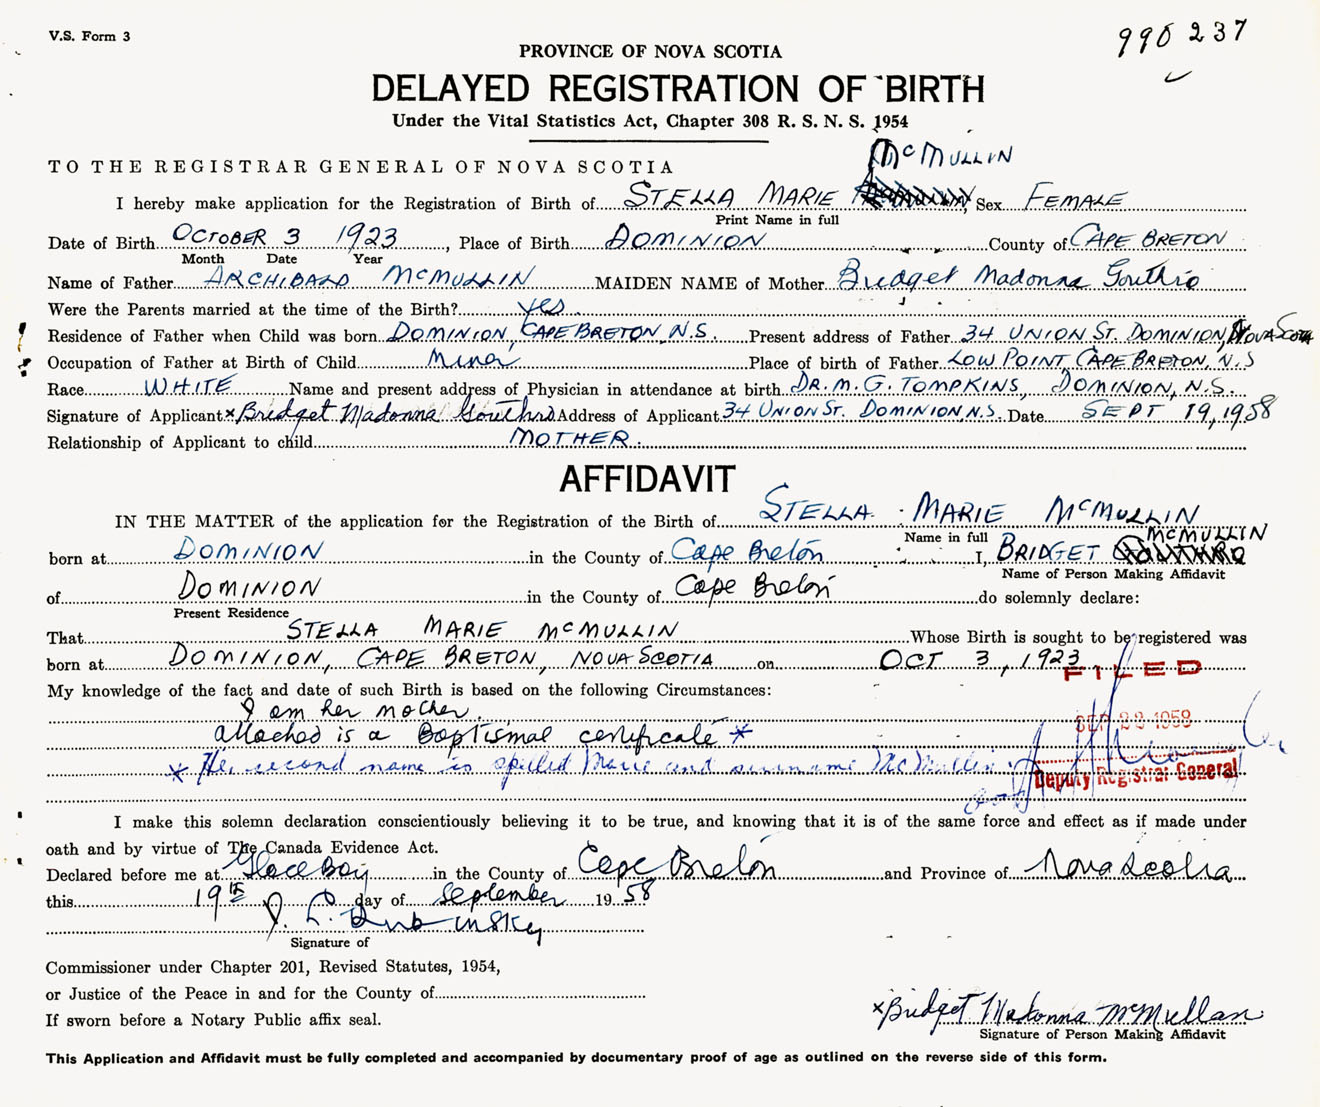 V.S. Form 3
990 237
PROVINCE OF NOVA SCOTIA
DELAYED REGISTRATION OF BIRTH
Under the Vital Statistics Act, Chapter 308 R. S. N. S. 1954
McMULLIN
TO THE REGISTRAR GENERAL OF NOVA SCOTIA
I hereby make application for the Registration of Birth of STELLA MARIE , Sex FEMALE
Print Name in full
Date of Birth OCTOBER 3 1923, Place of Birth DOMINION County of CAPE BRETON
Month Date Year
Name of Father ARCHIBALD McMULLIN MAIDEN NAME of Mother Bridget Madonna Gouthro
Were the Parents married at the time of the Birth? yes.
Residence of Father when Child was born DOMINION, CAPE BRETON, N.S. Present address of Father 34 UNION ST. DOMINION, NOVA SCOTIA
Occupation of Father at Birth of Child Miner Place of birth of Father LOW POINT, CAPE BRETON, N.S
Race WHITE Name and present address of Physician in attendance at birth DR. M. G. TOMPKINS, DOMINION, N.S.
Signature of Applicant x Bridget Madonna Gouthro Address of Applicant 34 UNION ST. DOMINION, N.S. Date SEPT 19, 1958
Relationship of Applicant to child MOTHER.
AFFIDAVIT
IN THE MATTER of the application for the Registration of the Birth of STELLA MARIE McMULLIN
Name in full McMULLIN
born at DOMINION in the County of Cape Breton I, BRIDGET GOUTHRO
Name of Person Making Affidavit
of DOMINION in the County of Cape Breton do solemnly declare:
Present Residence
That STELLA MARIE McMULLIN Whose Birth is sought to be registered was
born at DOMINION, CAPE BRETON, NOVA SCOTIA on OCT 3, 1923
FILED
My knowledge of the fact and date of such Birth is based on the following Circumstances:
I am her mother.
SEP 23 1958
attached is a Baptismal certificate *
* Her second name is spelled Marie and surname McMullin
Deputy Registrar General
I make this solemn declaration conscientiously believing it to be true, and knowing that it is of the same force and effect as if made under
oath and by virtue of The Canada Evidence Act.
Declared before me at Glace Bay in the County of Cape Breton and Province of Nova Scotia
this 19th day of September 1958
Signature of
Commissioner under Chapter 201, Revised Statutes, 1954,
or Justice of the Peace in and for the County of
If sworn before a Notary Public affix seal.
x Bridget Madonna McMullan
Signature of Person Making Affidavit
This Application and Affidavit must be fully completed and accompanied by documentary proof of age as outlined on the reverse side of this form.